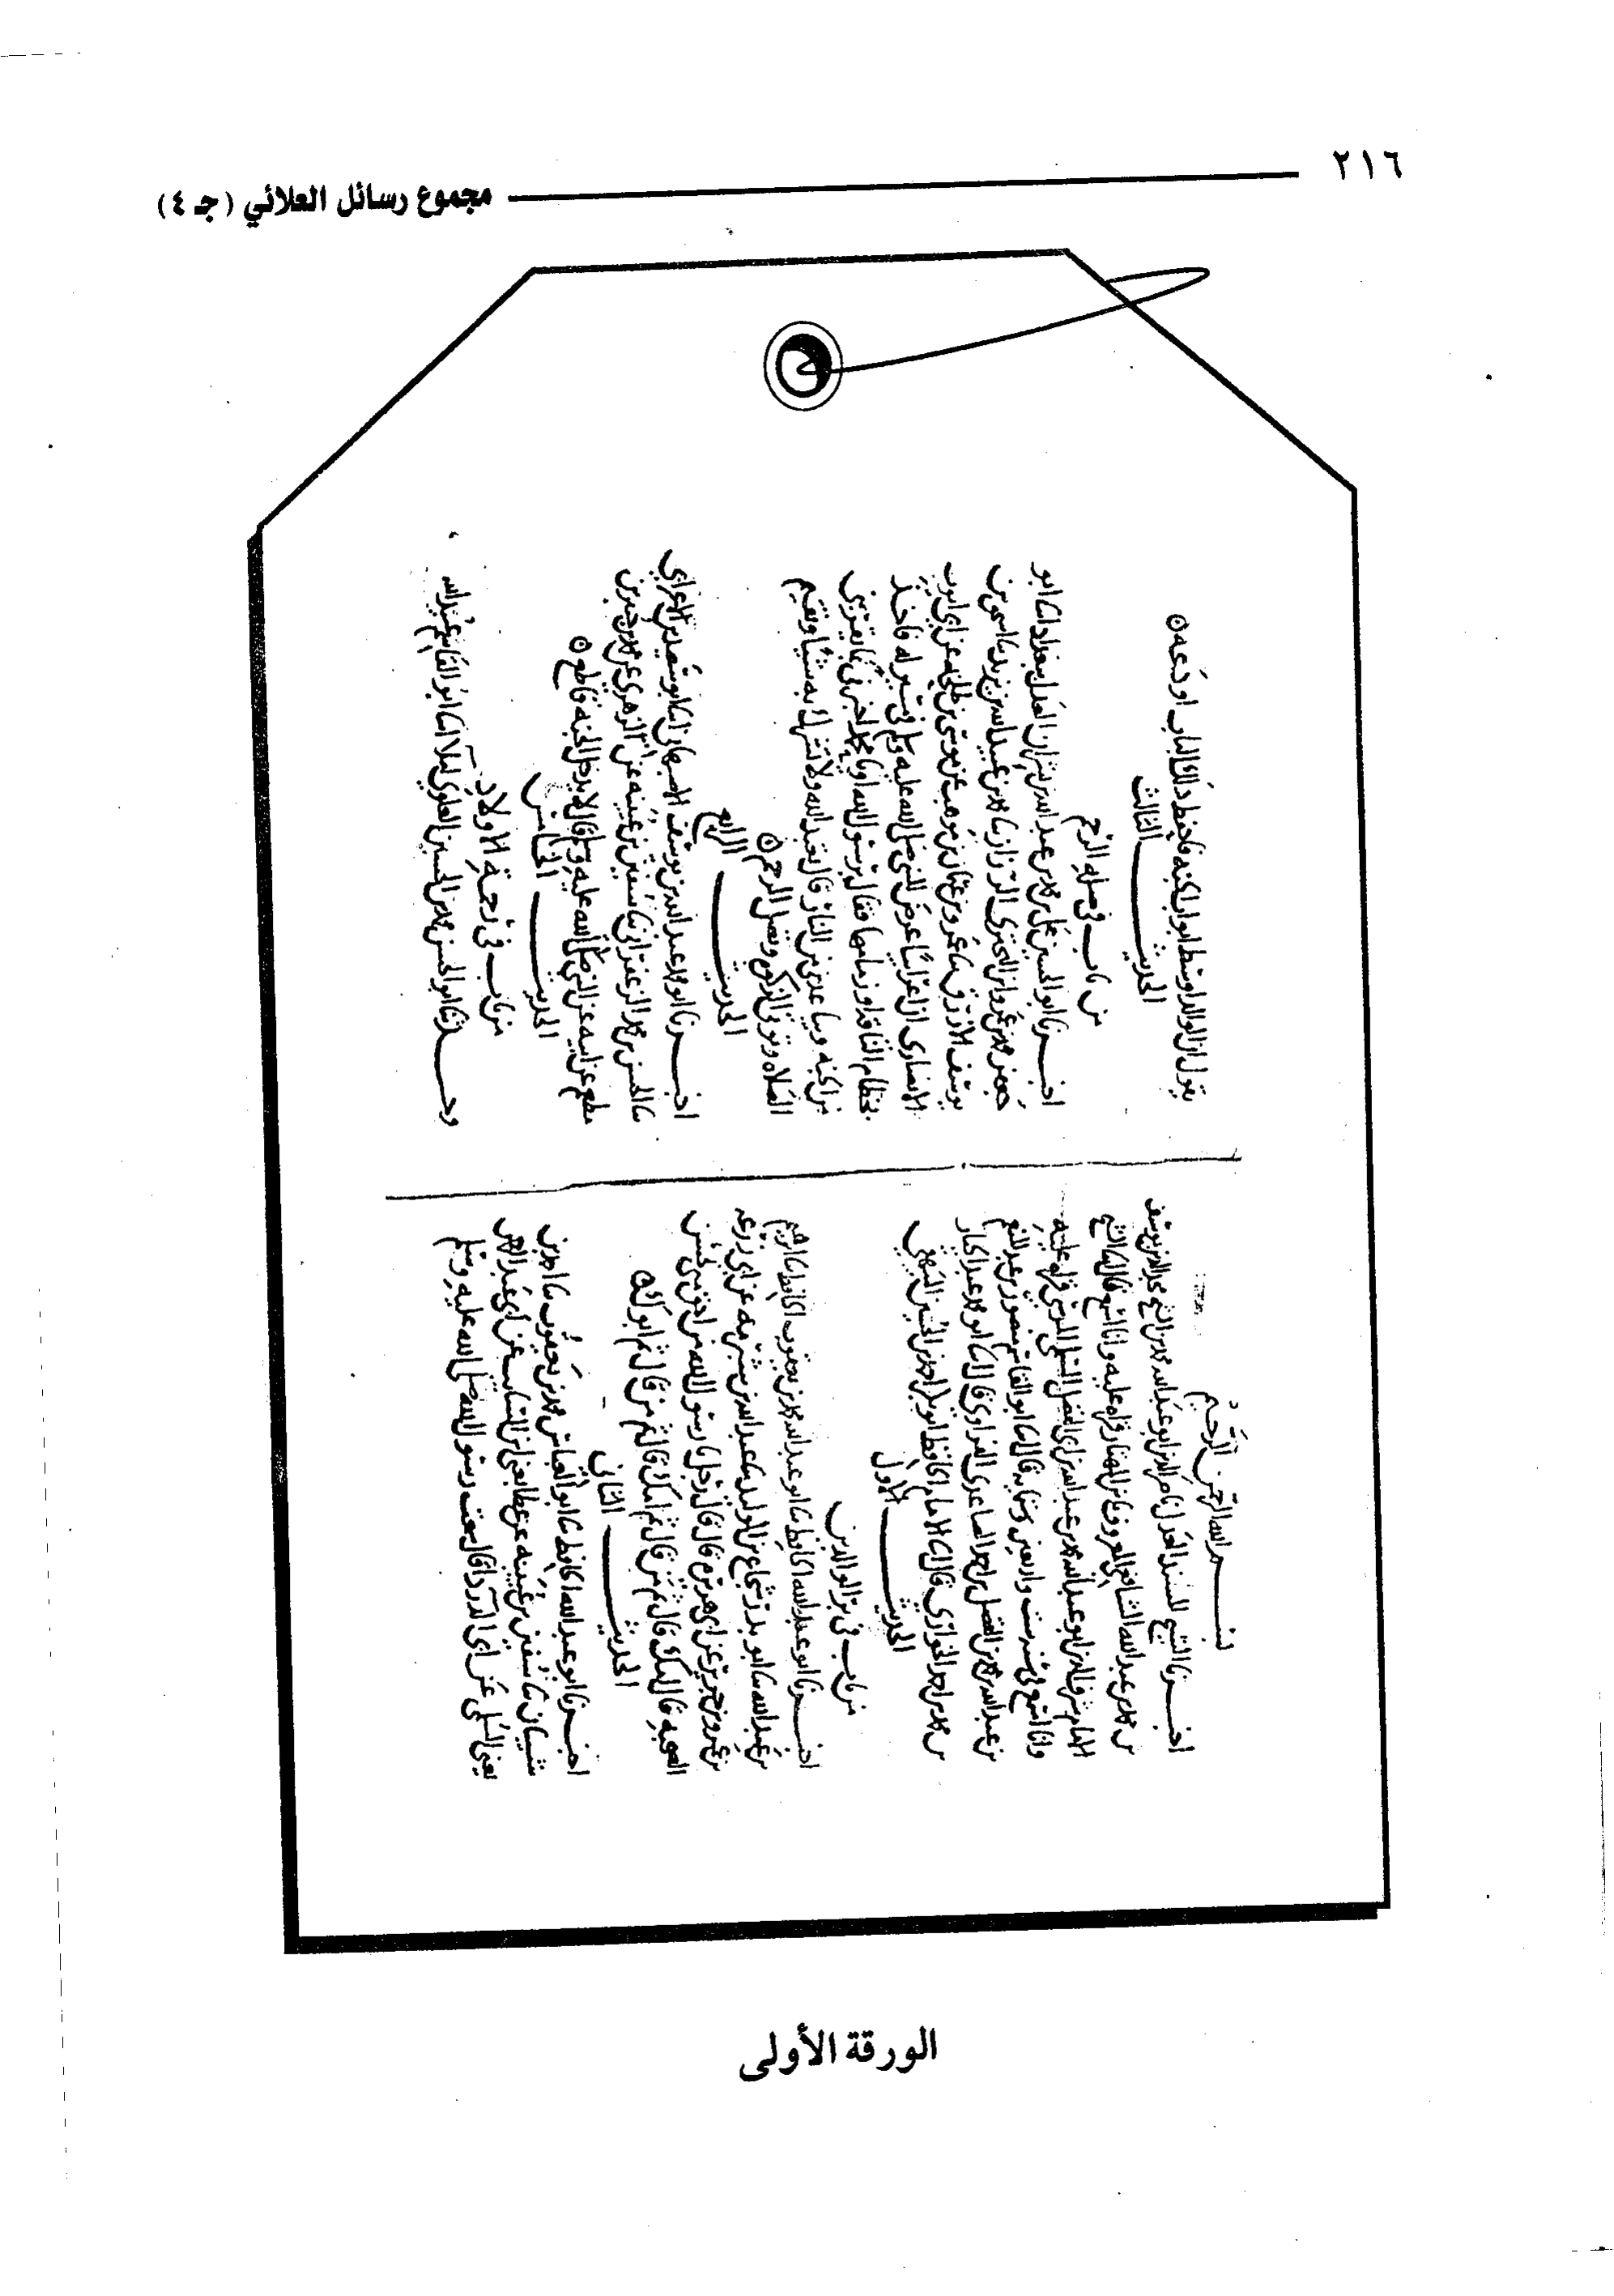 ٢١٦
مجموع رسائل العلائي (جـ ٤)
بسم الله الرحمن الرحيم
اخبرنا الشيخ المسند العدل ناصر الدين ابو عبد الله محمد بن الشيخ
بن محمد بن عبد الله الشافعي المعروف بابن المهتار قراه عليه وانا اسمع قال انا الشيخ
الامام شرف الدين ابو عبد الله محمد بن عبد الله بن ابي الفضل السلمي المرسي قراه عليه
وانا اسمع في سنه ست واربعين وستمايه قال انا ابو القاسم منصور بن عبد المنعم
بن عبد الله بن محمد بن الفضل بن احمد الصاعدي الفراوي قال انا ابو محمد عبد الجبار
بن محمد بن احمد الخواري قال انا الامام الحافظ ابو بكر احمد بن الحسين البيهقي
الحديث الاول
من باب في بر الوالدين
اخبرنا ابو عبد الله الحافظ نا ابو عبد الله محمد بن يعقوب الحافظ نا ابراهيم
بن عبد الله نا ابو بدر شجاع بن الوليد نا عبد الله بن شبرمه عن ابي زرعه
بن عمرو بن جرير عن ابي هريره قال قال رجل يا رسول الله من احق مني بحسن
الصحبه قال امك قال ثم من قال ثم امك قال ثم من قال ثم ابوك ه
الحديث الثاني
اخبرنا ابو عبد الله الحافظ نا ابو العباس محمد بن يعقوب نا احمد بن
شيبان نا سفين بن عيينه عن عطا يعني ابن السايب عن ابي عبد الرحمن
يعني السلمي عن ابي الدردا قال سمعت رسول الله صلى الله عليه وسلم
يقول ان الوالد اوسط ابواب الجنه فاحفظ ذلك الباب او دعه ه
الحديث الثالث
من باب في صله الرحم
اخبرنا ابو الحسين علي بن محمد بن عبد الله بن بشران العدل ببغداد انا ابو
جعفر محمد بن عمرو بن البختري الرزاز نا محمد بن عبيد الله بن يزيد نا اسحق بن
يوسف الازرق نا عمرو بن عثمان بن موهب عن موسى بن طلحه عن ابي ايوب
الانصاري ان اعرابيا عرض للنبي صلى الله عليه وسلم في مسير له فاخذ
بخطام الناقه او زمامها فقال يا رسول الله او يا محمد اخبرني بما يقربني
من الجنه ويباعدني من النار قال تعبد الله ولا تشرك به شيئا وتقيم
الصلاه وتوتي الزكوه وتصل الرحم ه
الحديث الرابع
اخبرنا ابو محمد عبد الله بن يوسف الاصبهاني انا ابو سعيد بن الاعرابي
نا الحسن بن محمد الزعفراني نا سفين بن عيينه عن الزهري عن محمد بن جبير بن
مطعم عن ابيه عن النبي صلى الله عليه وسلم قال لا يدخل الجنه قاطع ه
الحديث الخامس
من باب في رحمة الاولاد
وحدثنا ابو الحسن محمد بن الحسين العلوي املا انا ابو القاسم عبيد الله
الورقة الأولى